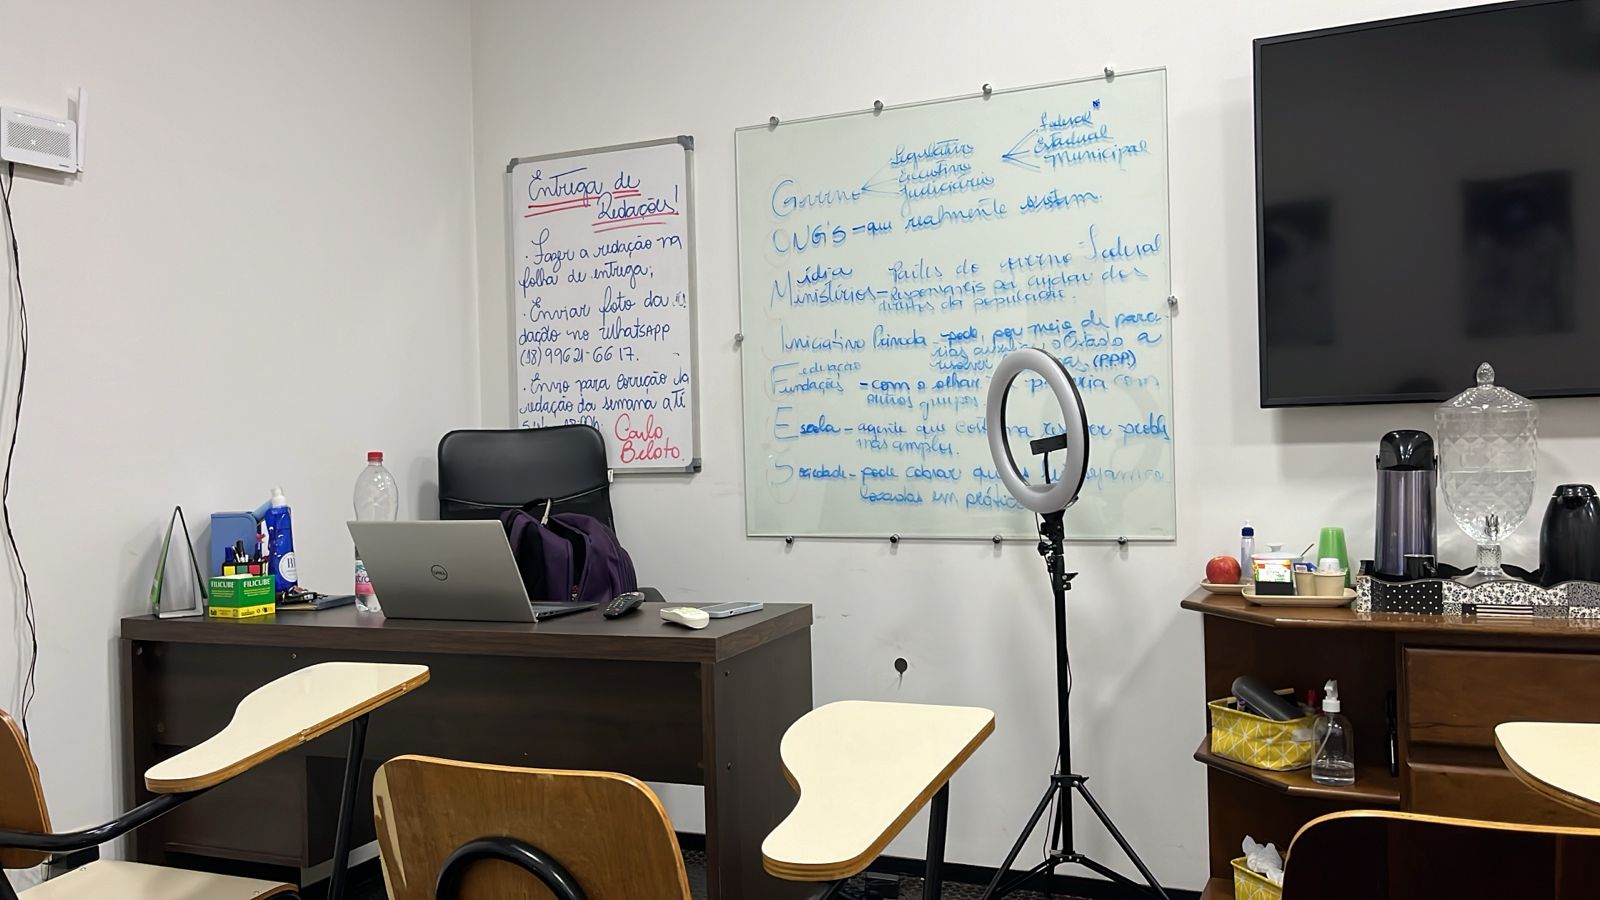 Entrega de
Redações!
· Fazer a redação na
folha de entrega;
· Enviar foto da re
dação no WhatsApp
(18) 99621-6617.
· Envio para correção da
redação da semana até
Carlo
Beloto.
Legislativo
Executivo
Judiciário
Federal*
Estadual
Municipal
Governo
ONG'S - que realmente existam.
Mídia
Ministérios - Partes do governo Federal
Responsáveis por cuidar dos
direitos da população.
Iniciativa Privada - pode, por meio de parce-
rias auxiliar o Estado a
resolver (PPP)
educação
Fundações - com o olhar parceria com
outros grupos
Escola - agente que probls
mais amplos.
Sociedade - pode cobrar que
FILICUBE
FILICUBE
DELL